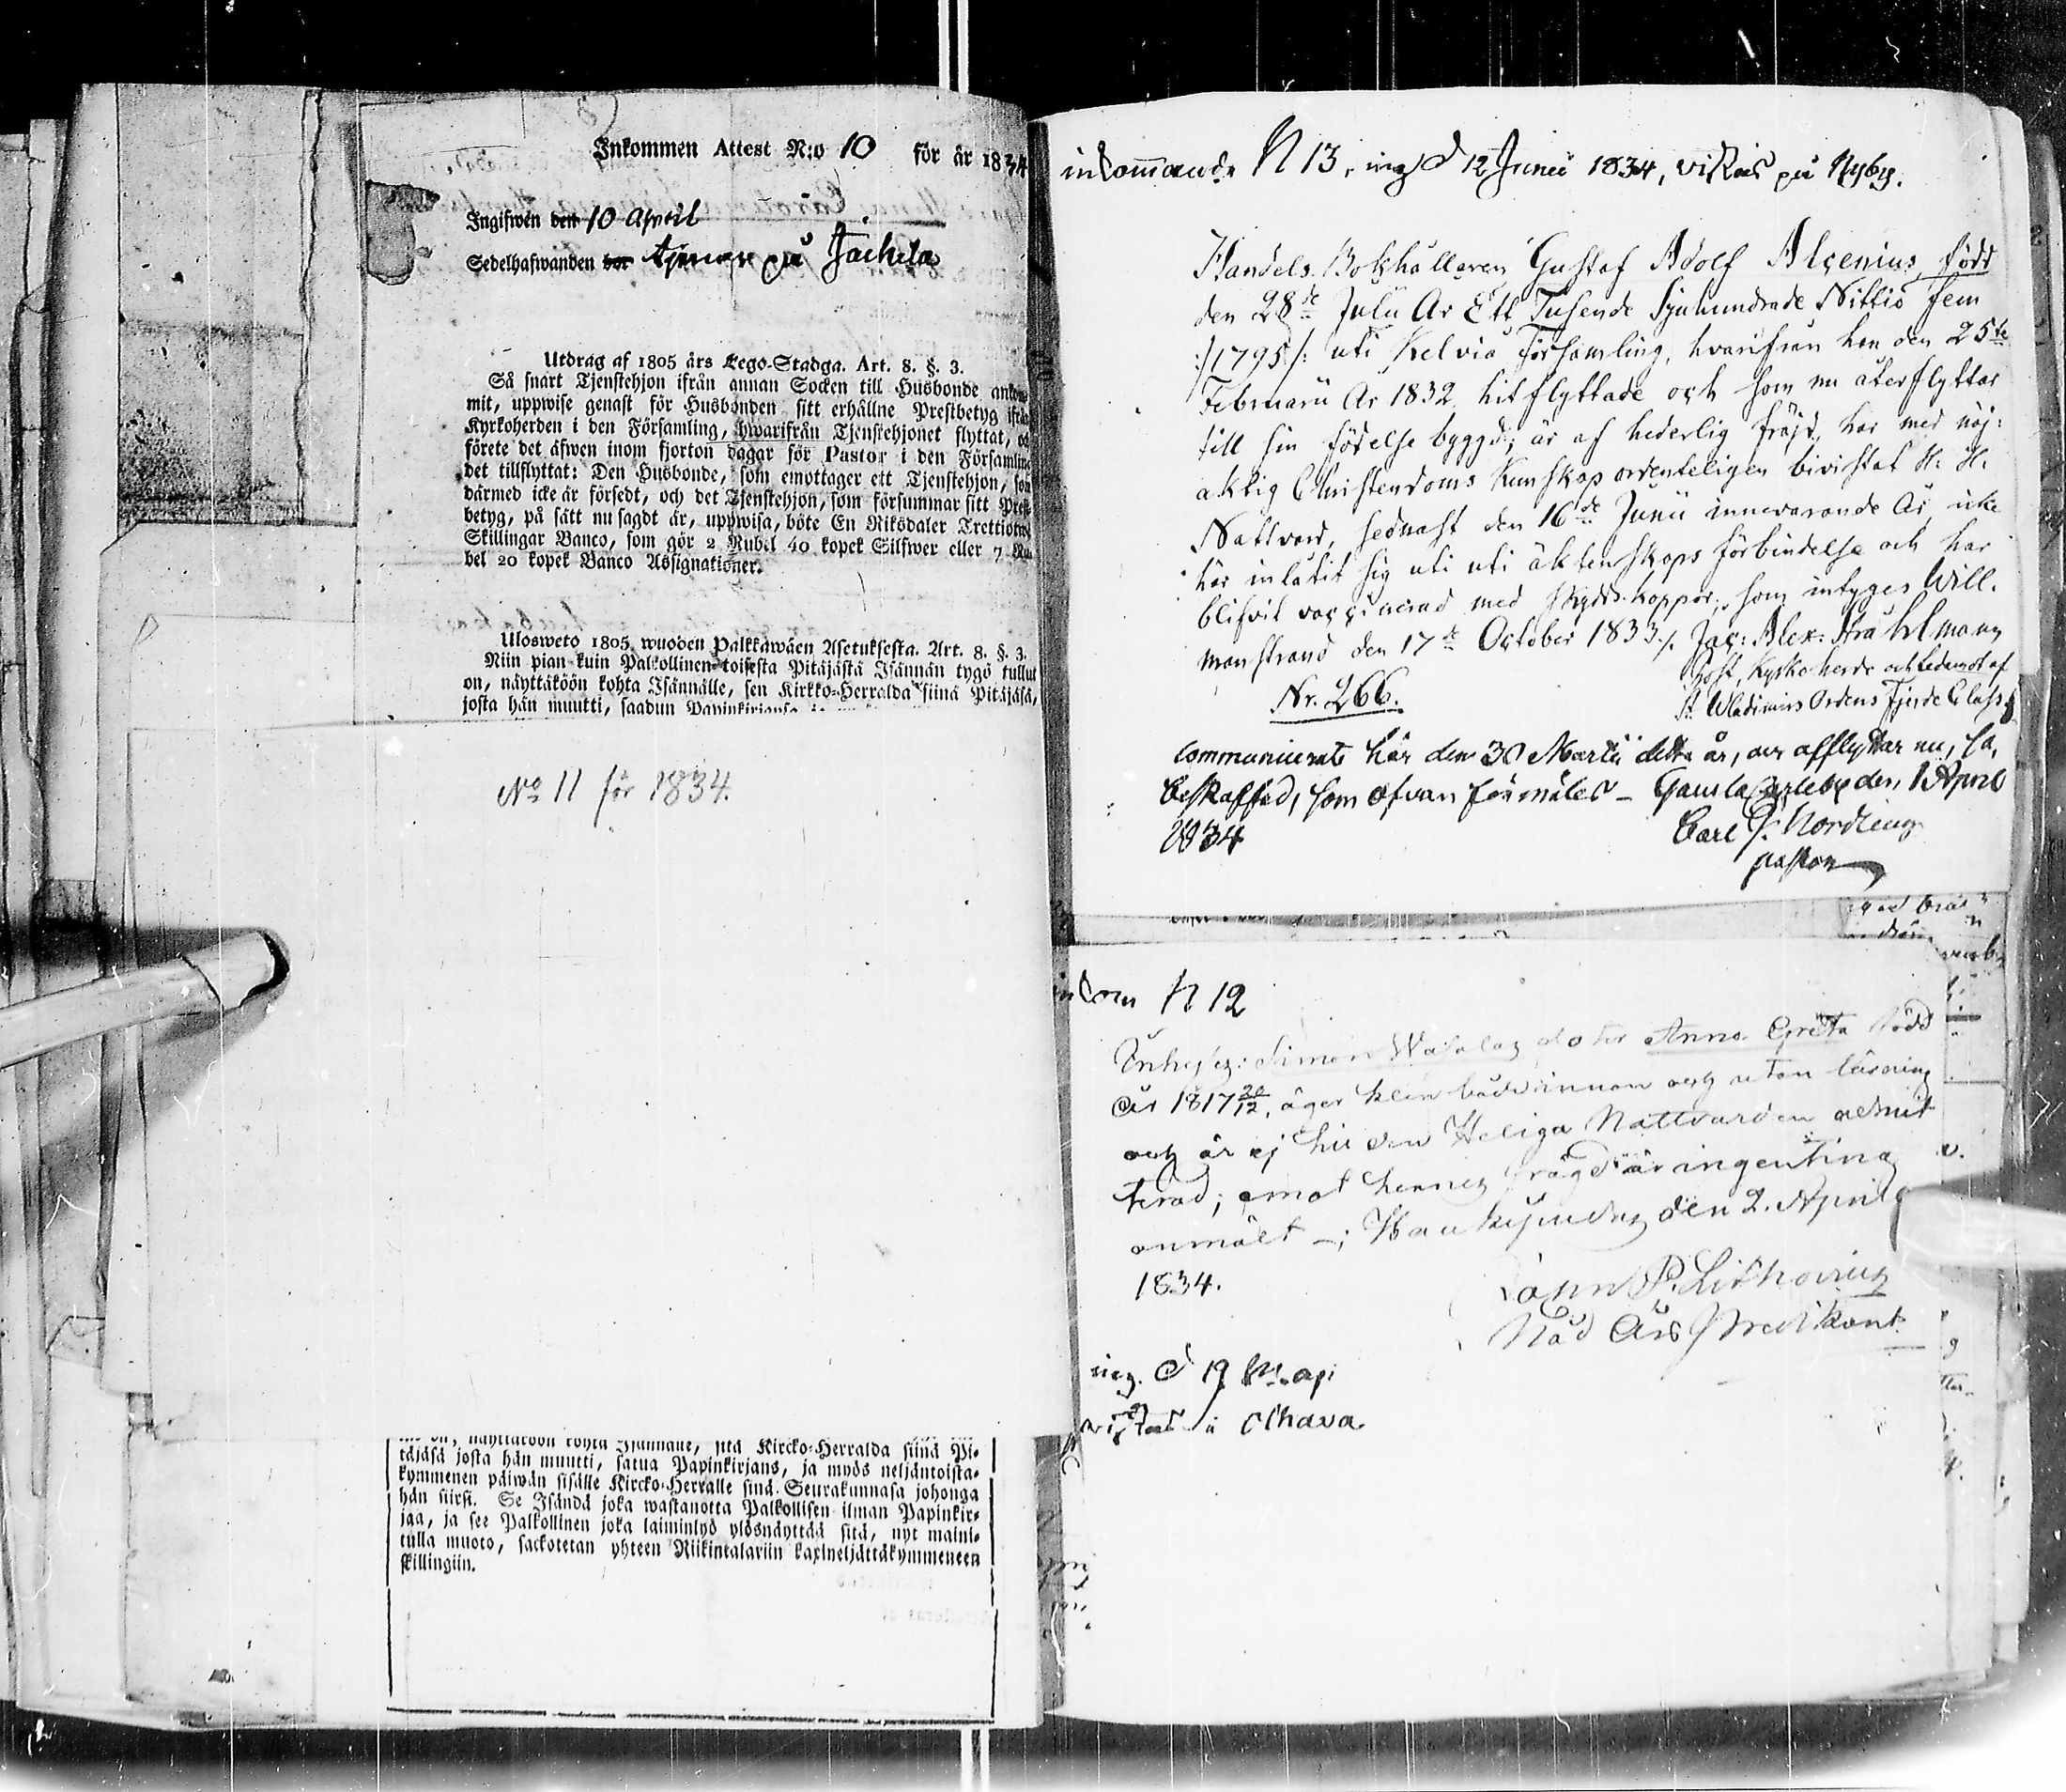 Inkommen Attest N:o 10 för år 1834
Ingifwen den 10 April
Sedelhafwanden bor tjenar på Jäckila
Utdrag af 1805 års Lego-Stadga. Art. 8. §. 3.
Så snart Tjenstehjon ifrån annan Socken till Husbonde ankom-
mit, uppwise genast för Husbonden sitt erhållne Prestbetyg ifrån
Kyrkoherden i den Församling, hwarifrån Tjenstehjonet flyttat, och
förete det äfwen inom fjorton dagar för Pastor i den Församling
det tillflyttat: Den Husbonde, som emottager ett Tjenstehjon, som
därmed icke är försedt, och det Tjenstehjon, som försummar sitt Prest-
betyg, på sätt nu sagdt är, uppwisa, böte En Riksdaler Trettiotwå
Skillingar Banco, som gör 2 Rubel 40 kopek Silfwer eller 7 Ru-
bel 20 kopek Banco Assignationer.
Ulosweto 1805. wuoden Palkkawäen Asetuksesta. Art. 8. §. 3.
Niin pian kuin Palkollinen toisesta Pitäjästä Isännän tygö tullut
on, näyttäköön kohta Isännälle, sen Kirkko-Herralda siinä Pitäjäsä,
josta hän muutti, saadun Papinkirjansa
No 11 för 1834.
on, näyttäköön kohta Isännälle, sitä Kircko-Herralda siinä Pi-
täjäsä josta hän muutti, satua Papinkirjans, ja myös neljäntoista-
kymmenen päiwän sisälle Kircko-Herralle sinä Seurakunnasa johonga
hän siirsi. Se Isändä joka wastanotta Palkollisen ilman Papinkir-
jaa, ja see Palkollinen joka laiminlyö ylösnäyttää sitä, nyt maini-
tulla muoto, sackotetan yhteen Riikintalariin kaxineljättäkymmeneen
skillingiin.
inkommande N 13, ing d 12 Junii 1834, vistas på Nyby.
Handels Bokhållaren Gustaf Adolf Alcenius, född
den 28de Julii År Ett Tusende Sjuhundrade Nittio fem
:/1795/: uti Kelviå Församling, hvarifrån han den 25te
Februarii År 1832 hitflyttade och som nu återflyttar
till sin födelse byggd; är af hederlig fräjd, har med nöj-
aktig Christendoms Kunskap ordenteligen bivistat H. H.
Nattvard, sednast den 16de Junii innevarande År, icke
här inlåtit sig uti uti äktenskaps förbindelse och har
blifvit vaccinerad med skydds-koppor; som intyges Will.
manstrand den 17de October 1833./. Jac: Alex: Stråhlmann
Post, Kyrkoherde och Ledamot af
St. Wladimirs Ordens Fjerde Class
Nr. 266.
communicerat här den 30 Martii detta år, och afflyttar nu, så,
beskaffad, som ofvan förmäles – Gamla Carleby den 1 April
1834
Carl J. Nordling
pastor
inkom N 12
Inhys: Simon dotter Anna Greta född
år 1817 20/12, äger klen både innan och utan läsning
och är ej till den Heliga Nattvarden admit
terad; emot hennes frägd är ingenting
anmält –; Haukipudas den 2. April
1834.
Johan P. Lithovius
Nåd Års Predikant.
ing. d 19 api
vistas i Olhava